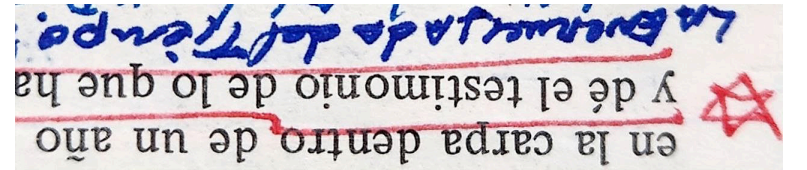 en la carpa dentro de un año
y dé el testimonio de lo que ha
del Tiempo